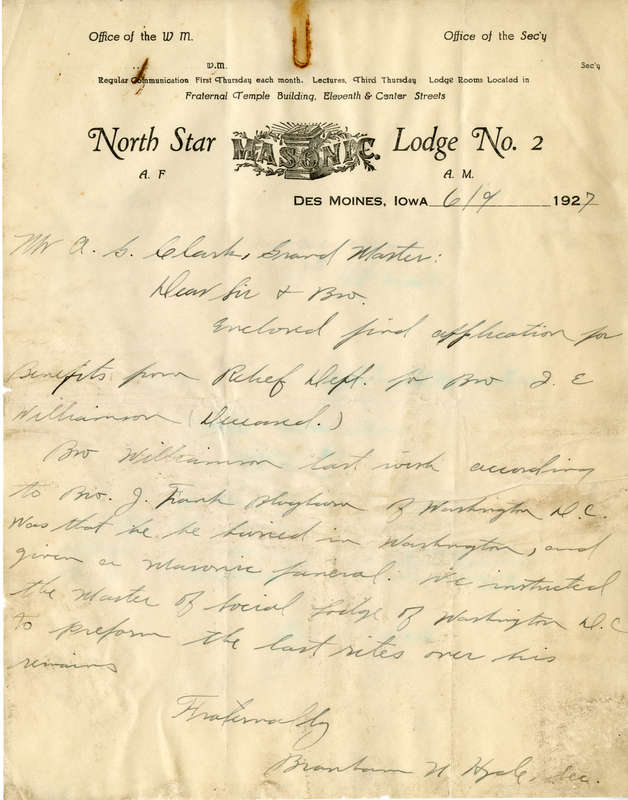 Office of the W M. Office of the Sec'y
W.M. Sec'y
Regular Communication First Thursday each month. Lectures, Third Thursday Lodge Rooms Located in
Fraternal Temple Building, Eleventh & Center Streets
North Star MASONIC Lodge No. 2
A. F A. M.
DES MOINES, IOWA 6/9 1927
Mr A. G. Clark, Grand Master:
Dear Sir & Bro.
Enclosed find application for
Benefits from Relief Dept. for Bro J. E
Williamson (Deceased.)
Bro Williamson last wish according
to Bro. J. Frank of Washington D.C.
was that he be buried in Washington, and
given a Masonic funeral. We instructed
the Master of Social Lodge of Washington D.C
To preform the last rites over his
remains
Fraternally
Hyde, Sec.